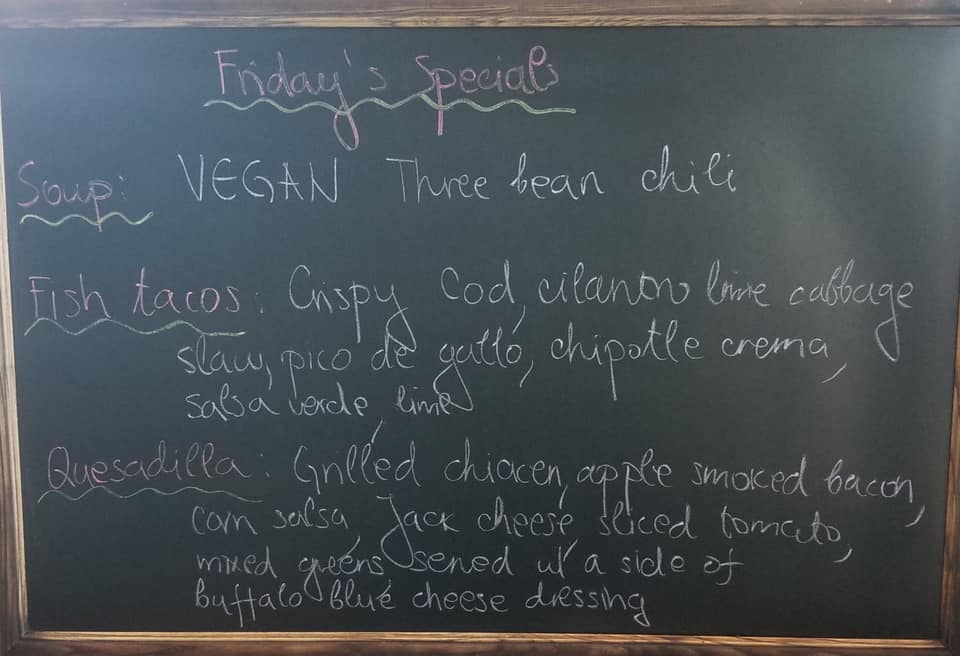 Friday's Specials
Soup: VEGAN Three bean chili
Fish tacos: Crispy Cod, cilantro lime cabbage
slaw, pico de gallo, chipotle crema,
salsa verde, lime
Quesadilla: Grilled chicken, apple smoked bacon,
corn salsa, Jack cheese, sliced tomato,
mixed greens, served w/ a side of
buffalo blue cheese dressing